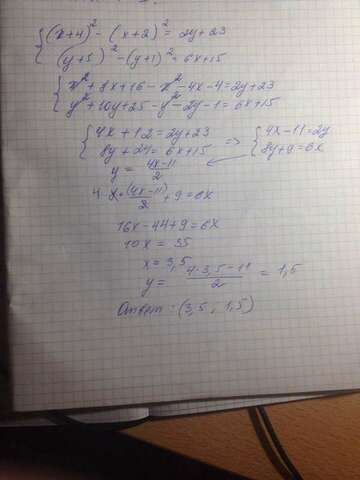 (x+4)² - (x+2)² = 2y+23
(y+5)² - (y+1)² = 6x+15
x² + 8x+16 - x² - 4x - 4 = 2y+23
y² + 10y + 25 - y² - 2y - 1 = 6x+15
4x + 12 = 2y+23 => 4x - 11 = 2y
8y + 24 = 6x+15 8y + 9 = 6x
y = (4x-11)/2
(4x-11)/2 + 9 = 6x
16x - 44 + 9 = 6x
10x = 35
x = 3,5
y = (4·3,5 - 11)/2 = 1,5
Ответ: (3,5 ; 1,5)